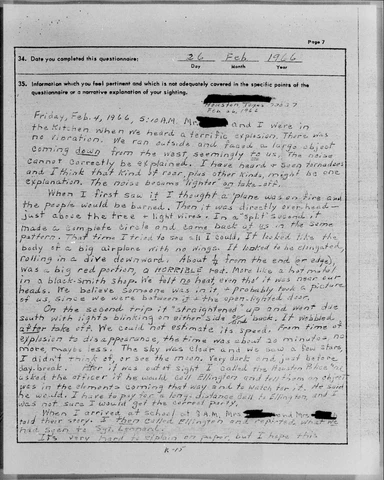 Page 7
34. Date you completed this questionnaire: 26 Feb 1966
Day Month Year
35. Information which you feel pertinent and which is not adequately covered in the specific points of the
questionnaire or a narrative explanation of your sighting.
Houston, Texas
Feb 26, 1966
Friday, Feb. 4, 1966, 5:10 A.M. Mrs and I were in
the Kitchen when we heard a terrific explosion. There was
no vibration. We ran outside and faced a large object
coming down from the west, seemingly to us. The noise
cannot correctly be explained. I have heard & seen tornadoes
and I think that kind of roar, plus other kinds, might be one
explanation. The noise became lighter on take-off.
When I first saw it I thought a plane was on fire and
the people would be burned. Then it was directly overhead -
just above the tree & light wires. In a "split second" it
made a complete circle and came back at us in the same
pattern. That time I tried to see all I could. It looked like the
body of a big airplane with no wings. It looked to be elongated,
rolling in a dive downward. About 1/3 from the end (or edge),
was a big red portion, a HORRIBLE red. More like a hot metal
in a black-smith shop. We felt no heat even tho' it was near our
heads. We believe someone was in it & probably took a picture
of us, since we were between it & the open-lighted door.
On the second trip it "straightened up" and went due
south with lights blinking on either side of back. It wobbled
after take off. We could not estimate its speed. From time of
explosion to disappearance, the time was about 20 minutes, no
more, maybe less. The sky was clear and we saw a few stars,
I didn't think of, or see the moon. Very dark and just before
day-break. After it was out of sight I called the Houston Police and
asked the officer if he would call Ellington and tell them an object
was in the elements coming that way and to watch for it. He said
he would. I have to pay for a long-distance call to Ellington, and I
was not sure I would get the correct party.
When I arrived at school at 8 A.M., Mrs and Mrs
told their story. I then called Ellington and reported what we
had seen to Sgt. Leonard.
It's very hard to explain on paper but I hope this